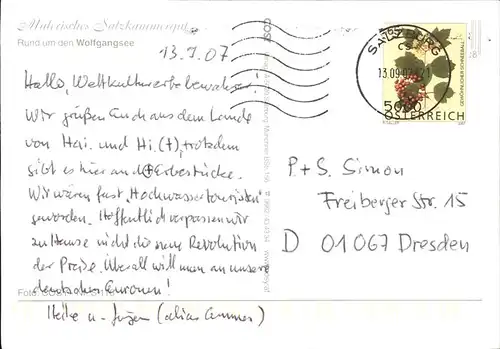 Malerisches Salzkammergut
Rund um den Wolfgangsee
13.9.07
Hallo, Weltkulturerbebewahrer!
Wir grüßen Euch aus dem Lande
von Hai. und Hi.(t), trotzdem
gibt es hier and Erbstücke.
Wir wären fast "Hochwassertouristen"
geworden. Hoffentlich verpassen wir
zu Hause nicht die neue Revolution
der Preise. Überall will man an unsere
deutschen Euronen!
Heike u. Jürgen (alias
SALZBURG
13.09.07
GEWÖHNLICHER SCHNEEBALL
ÖSTERREICH
P + S. Simon
Freiberger Str. 15
D 01067 Dresden